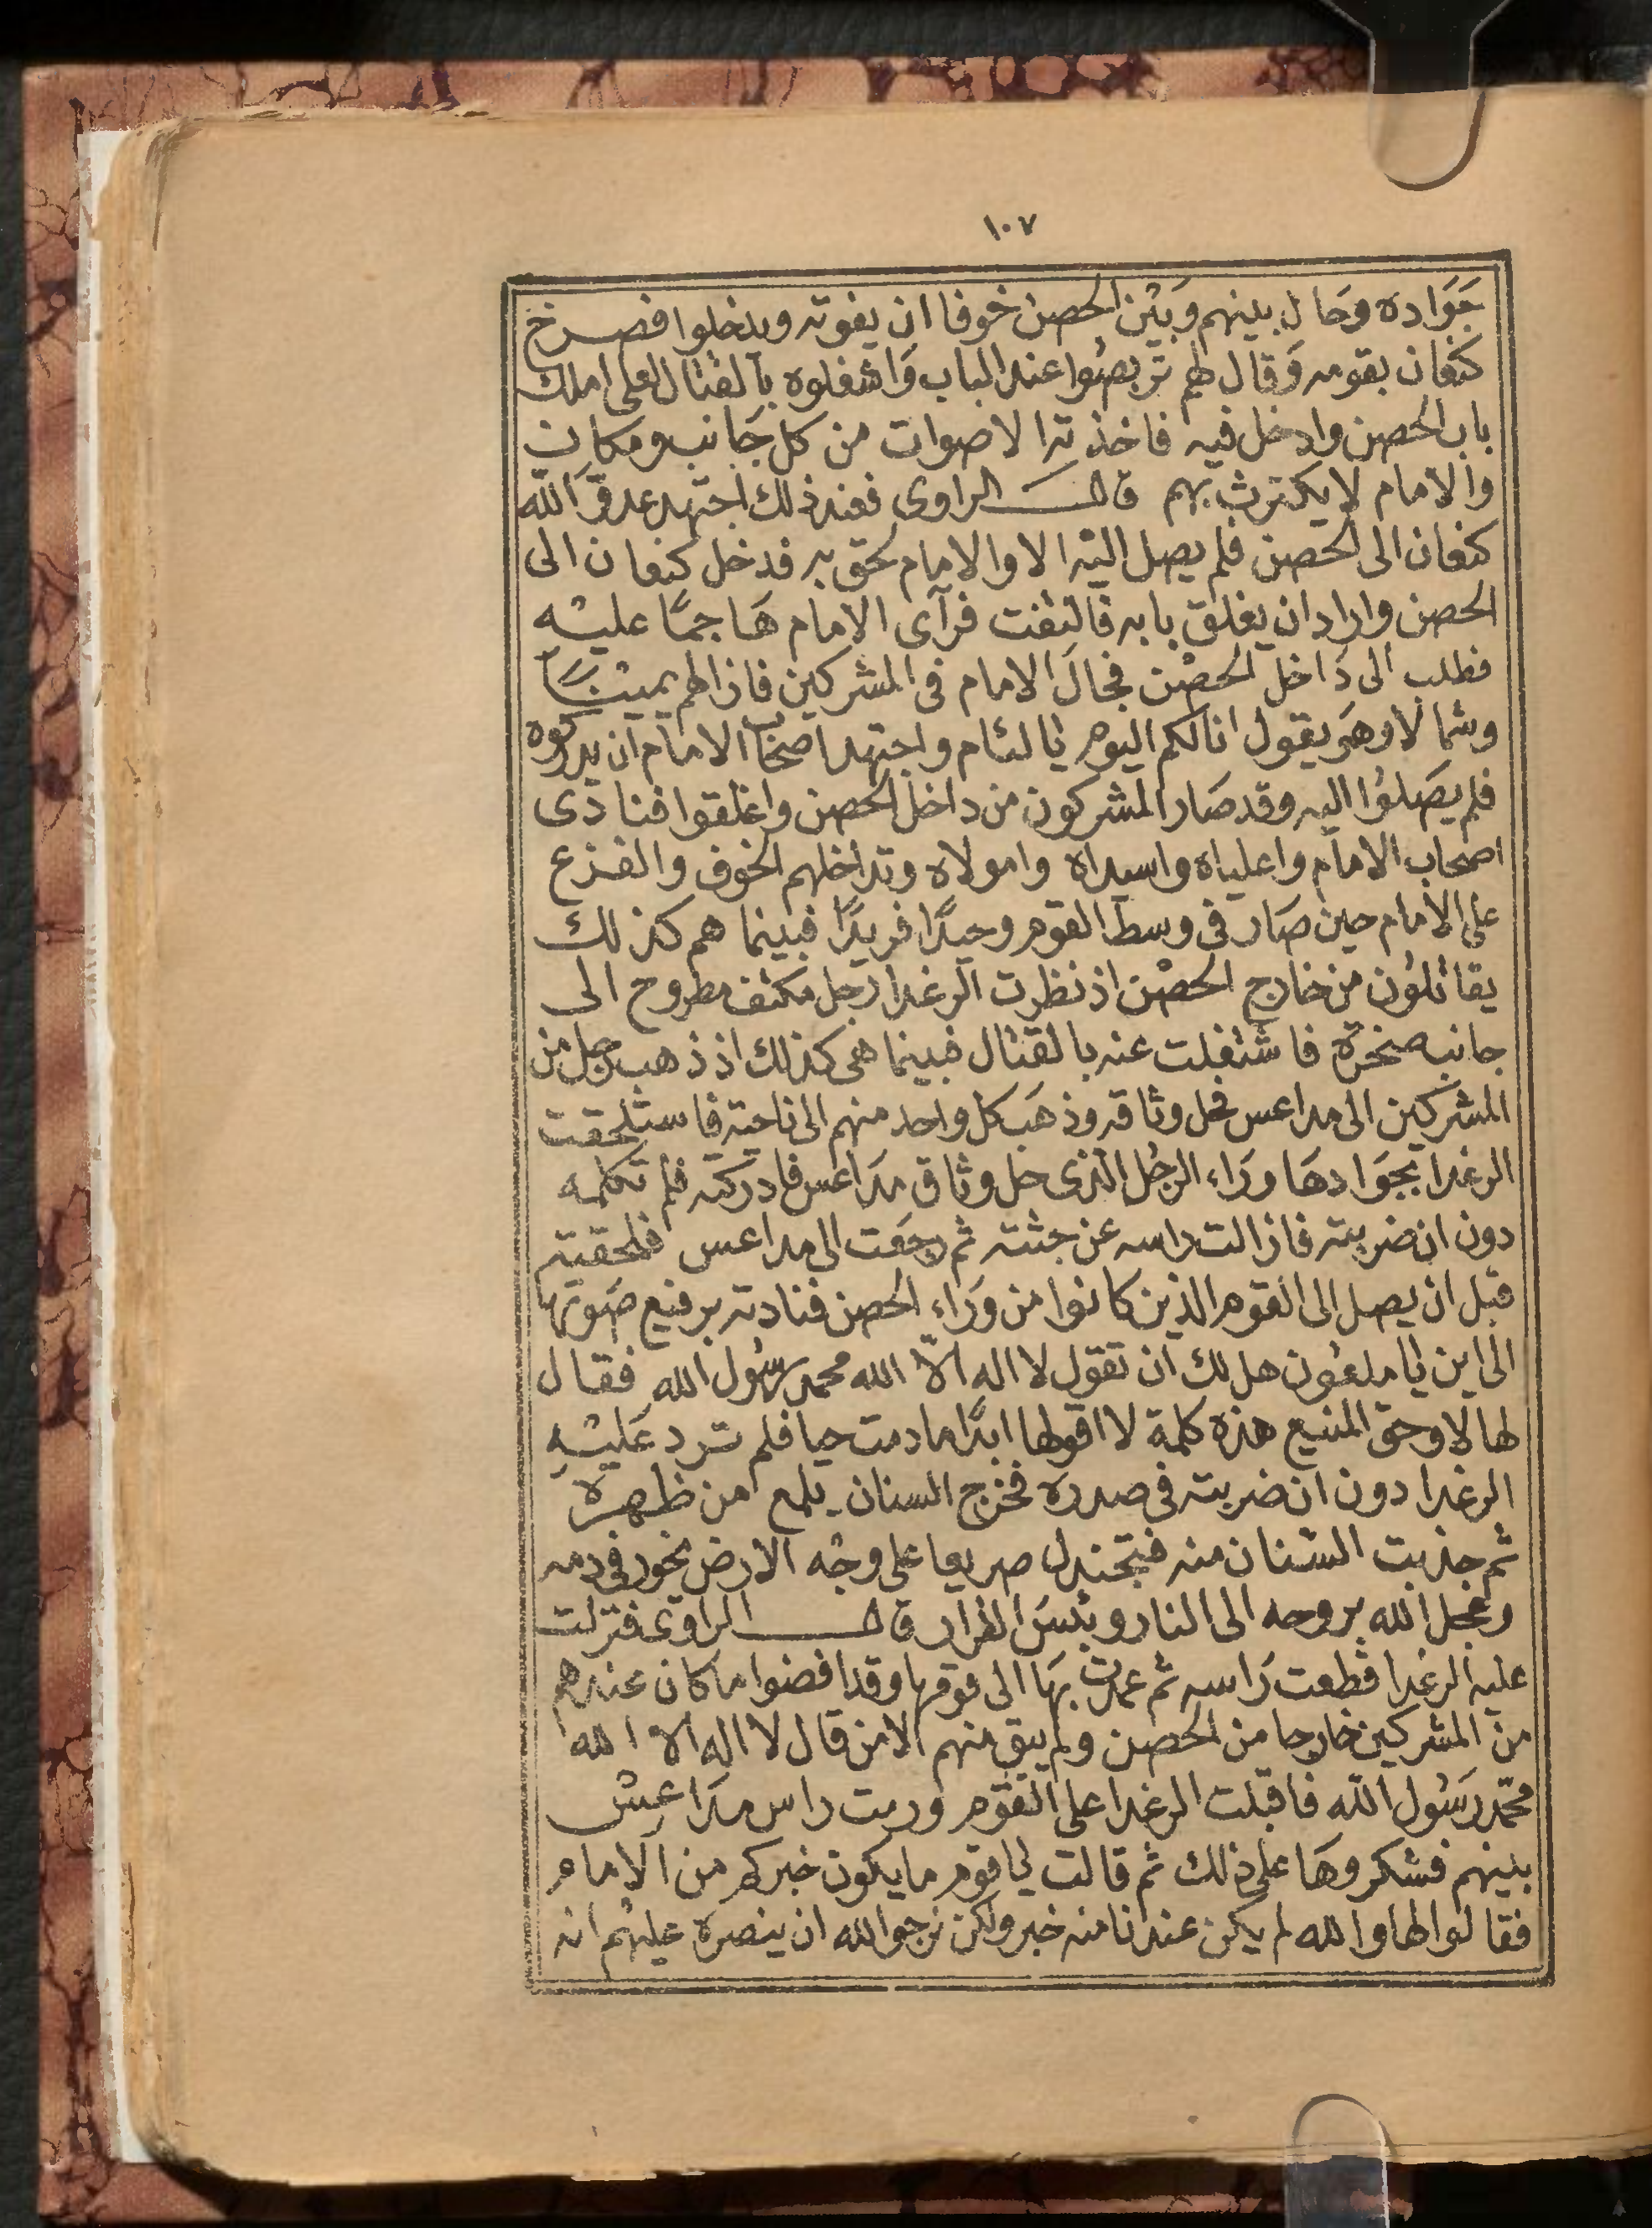 ١٠٧
جَوَاده وحَال بينهم وَبَيْن الحصن خوفا ان يفوته ويدخلوا فصرخ
كنعان بقومه وَقال لهم تربصُوا عند الباب وَاشغلوه بالقتال لعلى املك
باب الحصن وادخل فيه فاخذته الاصوات من كل جَانب ومكان
والامام لا يكترث بهم قال الراوى فعند ذلك اجتهد عدوّ الله
كنعان الى الحصن فلم يصل اليْه الا والامام لحق به فدخل كنعان الى
الحصن واراد ان يغلق بابه فالتفت فرآى الامام هَاجمًا عليْه
فطلب الى دَاخل الحصْن فجالَ الامام فى المشركين فازالهم يميْنًا
وشمالا وهو يقول انا لكم اليوم يا لئام واجتهد اصحَاب الامام ان يدركوه
فلم يصَلوُا اليه وقد صَار المشركون من داخل الحصن واغلقوا فنادى
اصحاب الامام واعلياه واسيداه وامولاه وتداخلهم الخوف والفزع
على الامام حين صَار فى وسط القوم وحيدًا فريدًا فبينما هم كذلك
يقاتلوُن من خارج الحصْن اذ نظرت الرغدا رجل مكتف مطروح الى
جانب صخرة فاشتغلت عنه بالقتال فبينما هى كذلك اذ ذهب رجل من
المشركين الى مداعس فحل وثاقه وذهَب كل واحد منهم الى ناحية فاستلحقت
الرغدا بجوَادهَا ورَاء الرجُل الذى حل وثاق مدَاعس فادركته فلم تكلمه
دون ان ضربته فازالت راسه عن جثته ثم رجعَت الى مداعس فلحقته
قبل ان يصل الى القوم الذين كانوا من ورَاء الحصن فنادته برفيع صَوتها
الى اين يا ملعُون هل لك ان تقول لا اله الاّ الله محمد رسُول الله فقال
لها لا وحق المنيع هذه كلمة لا اقولها ابدًا ما دمت حيا فلم ترد عَليْه
الرغدا دون ان ضربته فى صدره فخرج السنان يلمع من ظهره
ثم جذبت السنان منه فتجندل صريعا على وجْه الارض يخور فى دمه
وعجل الله بروحه الى النار وبئسَ القرار قال الراوى فنزلت
عليه الرغدا فقطعت رَاسه ثم عمدت بهَا الى قومها وقد افضوا ما كان عندهم
من المشركين خارجا من الحصن ولم يبق منهم الا من قال لا اله الا الله
محمّد رَسُول الله فاقبلت الرغدا على القوْم ورمت راس مدَاعس
بينهم فشكروهَا على ذلك ثم قالت يا قوم ما يكون خبركم من الامام
فقالوا لها والله لم يكن عندنا منه خبر ولكن نرجوا الله ان ينصره عليهْم انه